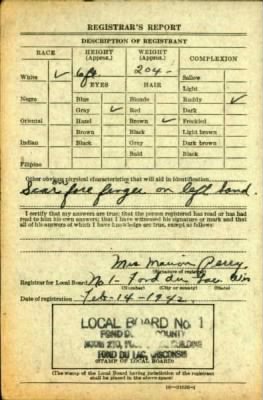 REGISTRAR'S REPORT
DESCRIPTION OF REGISTRANT
RACE HEIGHT (Approx.) WEIGHT (Approx.) COMPLEXION
White ✓ 6ft. 204- Sallow
EYES HAIR Light
Negro Blue Blonde Ruddy ✓
Gray ✓ Red Dark
Oriental Hazel Brown ✓ Freckled
Brown Black Light brown
Indian Black Gray Dark brown
Bald Black
Filipino
Other obvious physical characteristics that will aid in identification
Scar fore finger on left hand.
I certify that my answers are true; that the person registered has read or has had
read to him his own answers; that I have witnessed his signature or mark and that
all of his answers of which I have knowledge are true, except as follows:
Mrs Marion Perry
(Signature of registrar)
Registrar for Local Board No 1- Fond du Lac Wis
(Number) (City or county) (State)
Date of registration Feb-14-1942
LOCAL BOARD No 1
FOND DU COUNTY
ROOM 210, BUILDING
FOND DU LAC, WISCONSIN
(STAMP OF LOCAL BOARD)
(The stamp of the Local Board having jurisdiction of the registrant
shall be placed in the above space.)